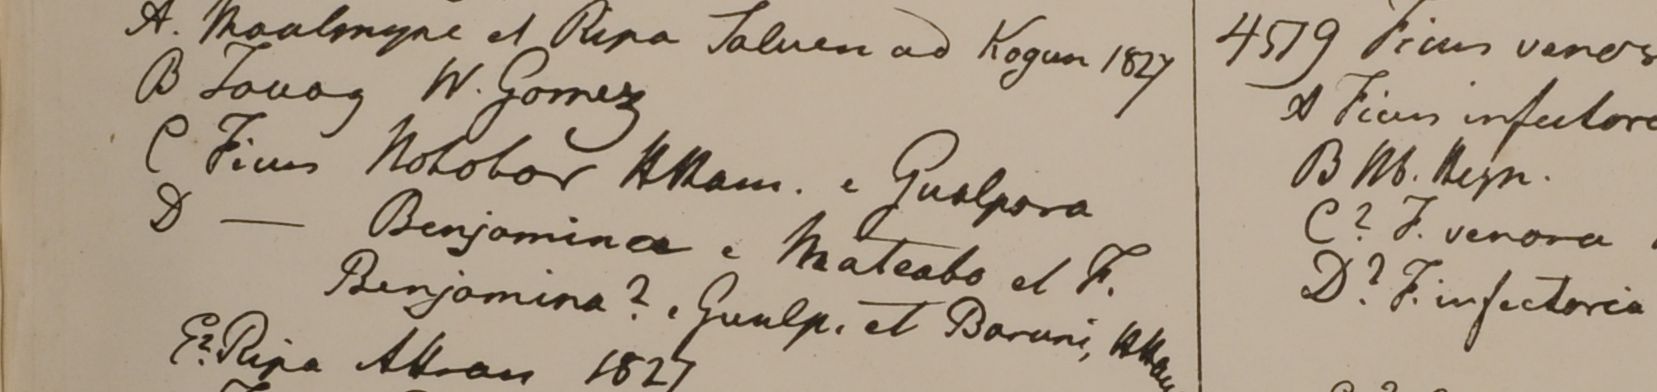 A. Moalmyne et Ripa Saluen ad Kogun 1827
B Tavoy W. Gomez
C Ficus Notobor HHam. e Gualpara
D — Benjaminea e Mateabo et F.
Benjamina? e Gualp. et Baruni, HHam
E? Ripa Attran 1827
4519 Ficus venos
A Ficus infectori
B Hb. Heyn.
C? F. venosa
D? F. infectoria